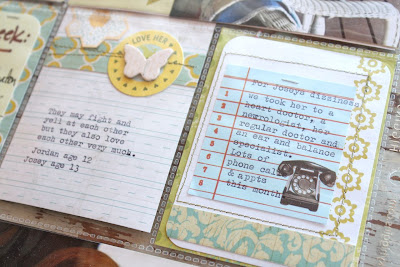 eek:
LOVE HER
They may fight and
yell at each other
but they also love
each other very much.
Jordan age 12
Josey age 13
For Joseys dizziness
1 we took her to a
2 heart doctor, a
3 neurologist, her
4 regular doctor
5 an ear and balance
6 specialist.
Lots of
7 phone calls
& appts
8 this month